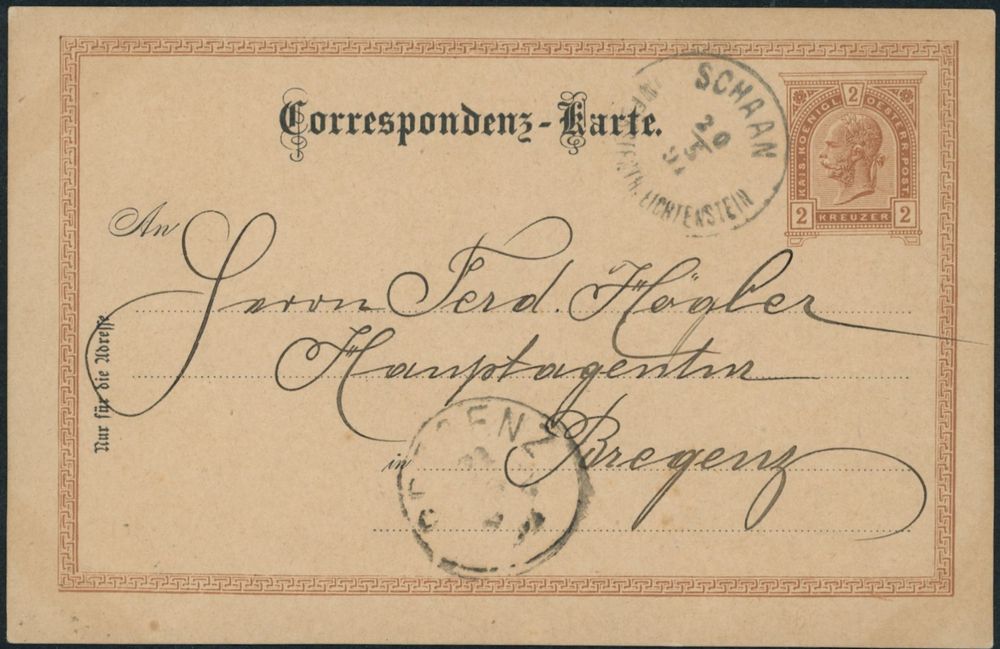 Correspondenz-Karte.
SCHAAN
20
5
LICHTENSTEIN
KAIS. KOENIGL. OESTERR. POST
2
2 KREUZER 2
An
Herrn Ferd. Högler
Hauptagentur
in Bregenz
Nur für die Adresse
ENZ